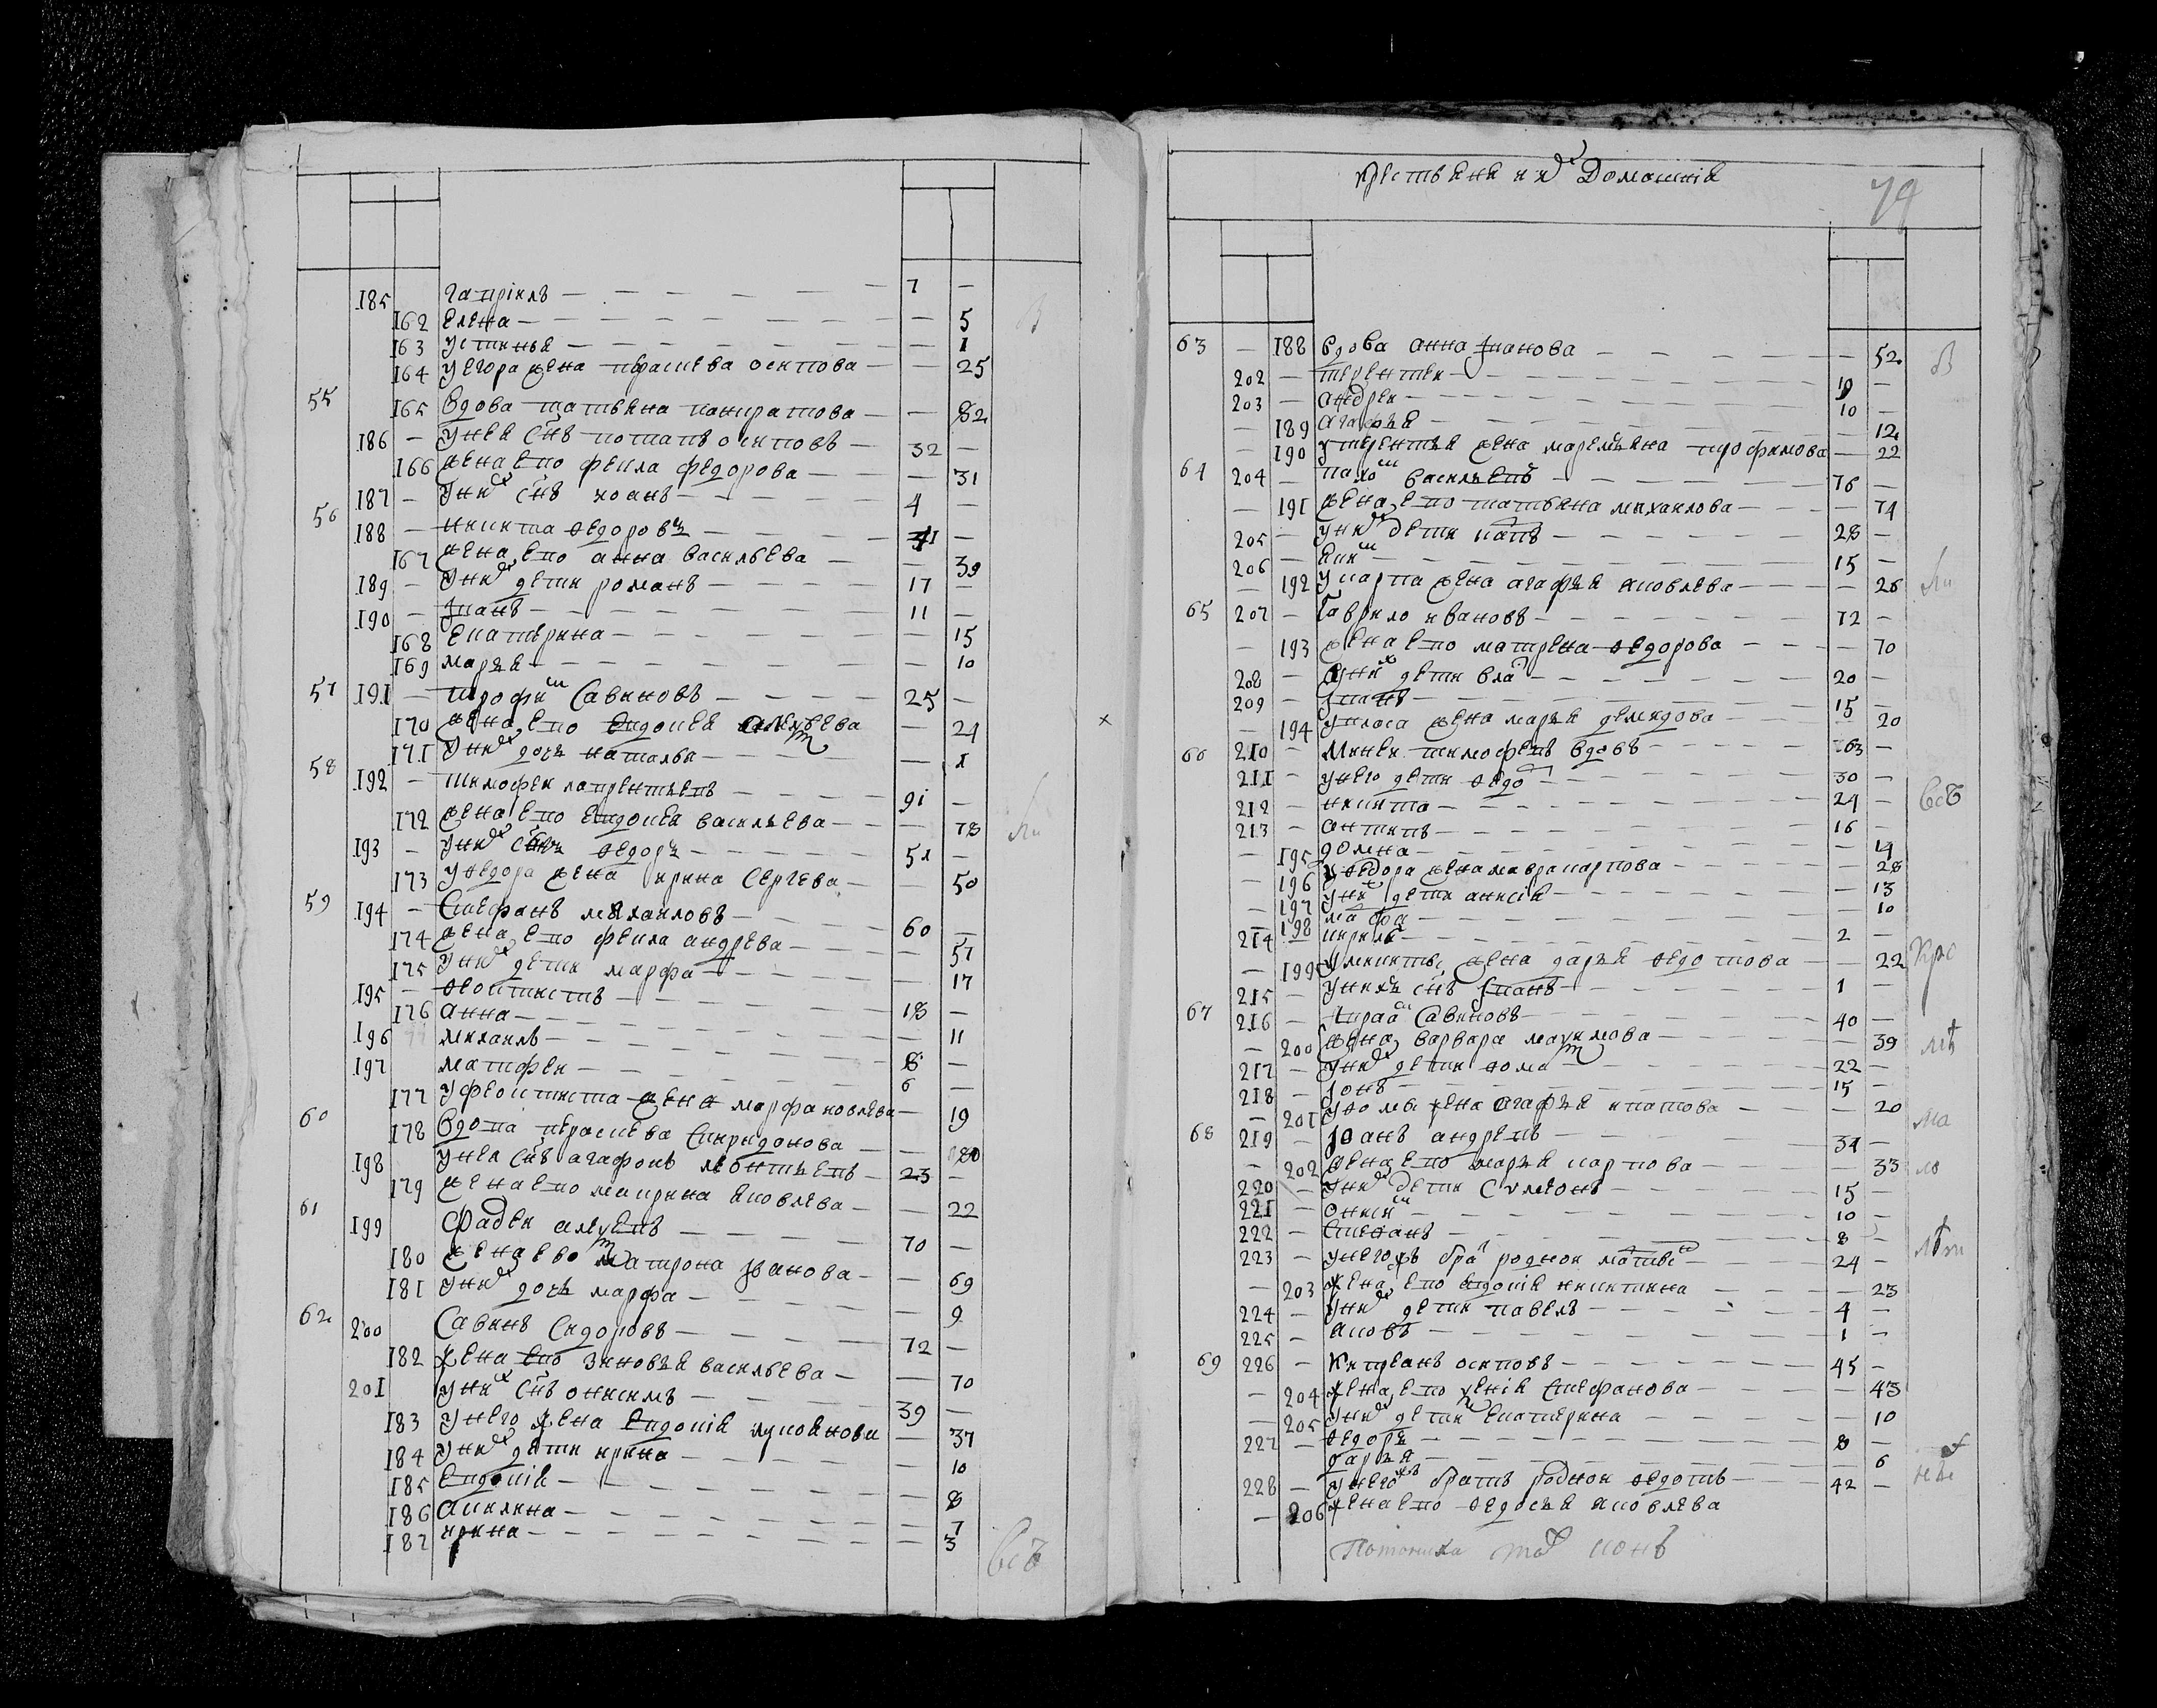 185 гаврiилъ — 7 —
162 елена — — 5
163 устинья — — 1
164 у егора жена парасцева осипова — — 25
55 165 вдова татьяна панкратова — — 82
186 — у нея снъ потапъ осиповъ — 32 —
166 жена ево фекла федорова — — 31
187 — у них снъ иоанъ — 4 —
56 188 — никита ѳедоровъ — 41 —
167 жена ево анна васильева — — 39
189 — у них дети романъ — 17 —
190 — iванъ — 11 —
168 екатерина — — 15
169 марья — — 10
57 191 — трофим савиновъ — 25 —
170 жена ево евдокея — 24
171 у них дочь наталья — — 1
58 192 — тимофеи лаврентьевъ — 91 —
172 жена ево евдокея васильева — — 78
193 — у них снъ ѳедоръ — 51 —
173 у ѳедора жена ирина сергева — — 50
59 194 — стефанъ михаиловъ — 60 —
174 жена ево фекла андрева — — 57
175 у них дети марфа — — 17
195 — ѳеоктистъ — 18 —
176 анна — — 11
196 михаилъ — 8 —
197 матфеи — 6 —
177 у феоктиста жена марфа яковлева — — 19
60 178 вдова парасцева спиридонова — — 80
198 у нея снъ агафонъ леонтьевъ — 23 —
179 жена ево маврина яковлева — — 22
61 199 фадеи алеѯевъ — 70 —
180 жена ево матрона iванова — — 69
181 у них дочь марфа — — 9
62 200 савинъ сидоровъ — 72 —
182 жена ево зиновья васильева — — 70
201 у них снъ онисимъ — 39 —
183 у него жена евдокiя лукоянова — — 37
184 у них дети ирина — — 10
185 евдокiя — — 8
186 акилина — — 7
187 ирина — — 3
всѣ
крестьяня и их домашнiя
74
63 — 188 вдова анна iванова — — 52
202 — терентеи — 19 —
203 — андреи — 10 —
— 189 агафья — — 12
— 190 у терентья жена маремьяна трофимова — 22
64 204 — пахом васильевъ — 76 —
— 191 жена ево татьяна михаилова — — 74
205 — у них дети карпъ — 28 —
206 — еким — 15 —
— 192 у карпа жена агафья яковлева — — 26
65 207 — гаврило ивановъ — 72 —
— 193 жена ево матрена ѳедорова — — 70
208 — у них дети вла — 20 —
209 — iванъ — 15 —
— 194 у власа жена марья демидова — — 20
66 210 — михеи тимофевъ вдовъ — 63 —
211 — у него дети ѳедо — 30 —
212 — никита — 24 — всѣ
213 — антипъ — 16 —
— 195 домна — — 19
— 196 у ѳедора жена мавра карпова — — 28
— 197 у них дети анисiя — — 13
— 198 марфа — — 10
214 — кирилъ — 2 —
— 199 у никиты жена дарья ѳедотова — — 22
215 — у нихъ снъ iванъ — 1 —
67 216 — савиновъ — 40 —
— 200 жена варвара маѯимова — — 39
217 — у них дети ѳома — 22 —
218 — iонъ — 15 —
— 201 у ѳомы жена агафья ипатова — — 20
68 219 — iоанъ андревъ — 34 —
— 202 жена ево марья карпова — — 33
220 — у них дети сѵмеонъ — 15 —
221 — онисим — 10 —
222 — стеѳанъ — 8 —
223 — у него жъ брат роднои матвеи — 24 —
— 203 жена ево евдокiя никитина — — 23
224 — у них дети павелъ — 4 —
225 — яковъ — 1 —
69 226 — киприанъ осиповъ — 45 —
— 204 жена ево ѯенiя стефанова — — 43
— 205 у них дети екатерина — — 10
227 — ѳедоръ — 8 —
дарья — — 6
228 — у него жъ братъ роднои ѳедотъ — 42 —
— 206 жена ево ѳедосья яковлева